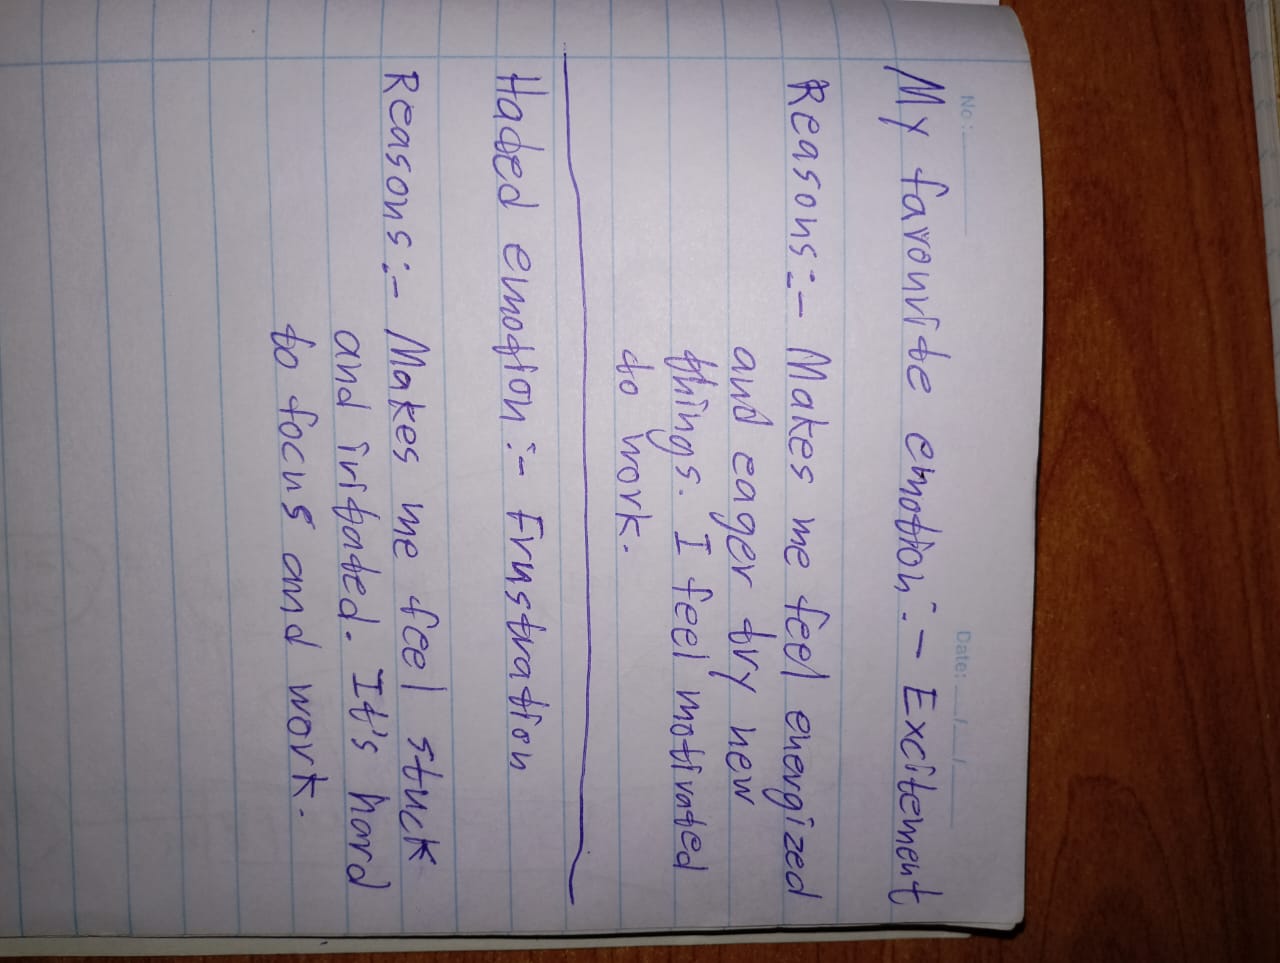 No:
Date: __/__/__
My favourite emotion:- Excitement
Reasons:- Makes me feel energized
and eager try new
things. I feel motivated
to work.
Hated emotion:- Frustration
Reasons:- Makes me feel stuck
and iritated. It's hard
to focus and work.